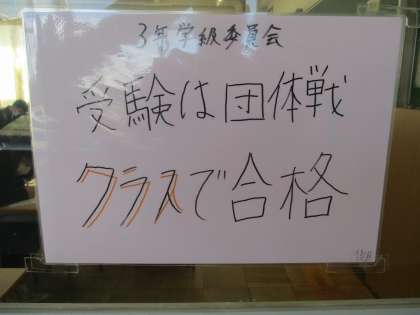 3年学級委員会
受験は団体戦
クラスで合格